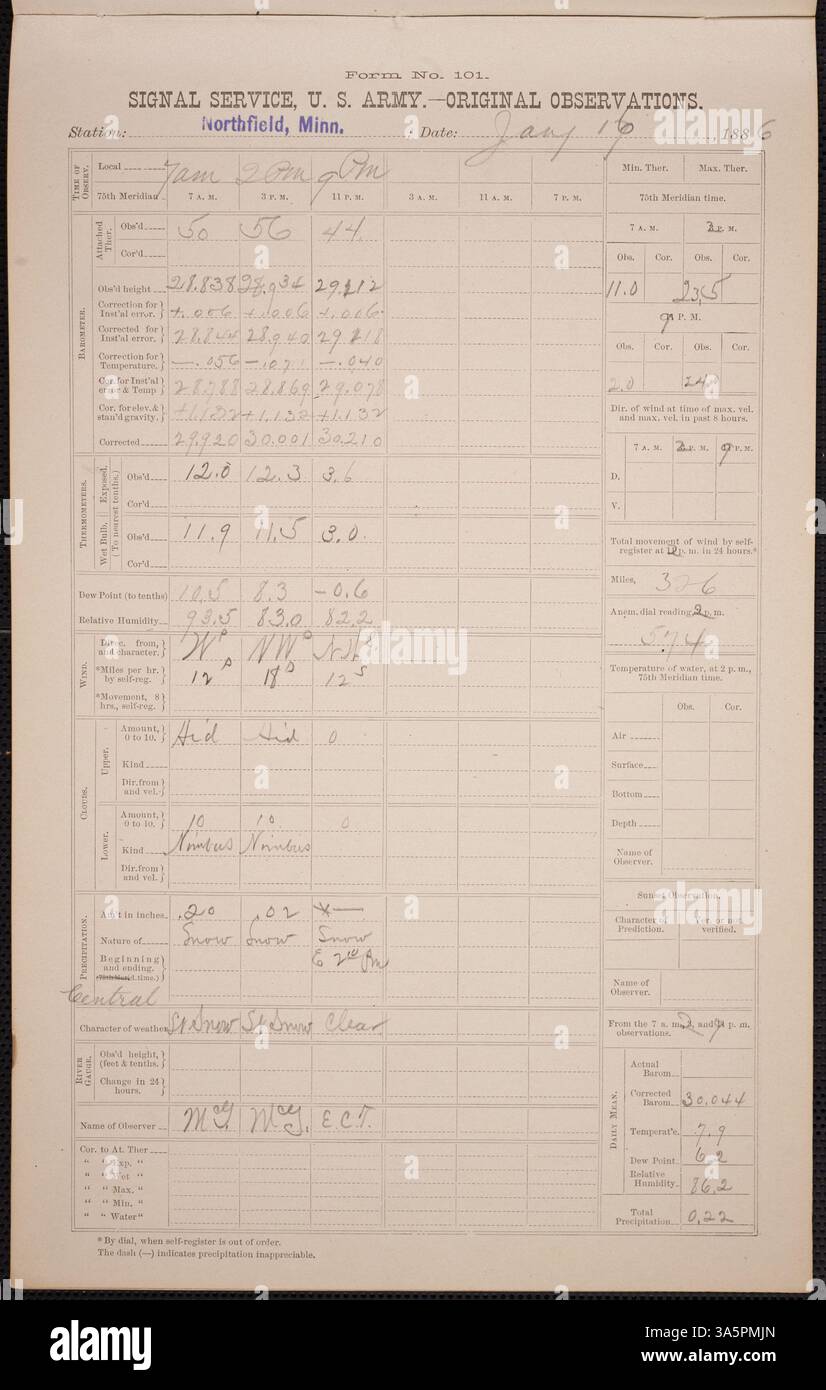 Form No. 101.
SIGNAL SERVICE, U. S. ARMY.—ORIGINAL OBSERVATIONS.
Station: Northfield, Minn. ; Date: Jany 16, 1886
TIME OF OBSERV. Local 7 am 2 Pm 9 Pm
75th Meridian 7 A. M. 3 P. M. 11 P. M. 3 A. M. 11 A. M. 7 P. M.
Attached Ther. Obs'd 50 56 44
Cor'd
BAROMETER.
Obs'd height 28.838 28.934 29.112
Correction for Inst'al error. +.006 +.006 +.006
Corrected for Inst'al error. 28.844 28.940 29.118
Correction for Temperature. —.056 —.071 —.040
Cor. for Inst'al error & Temp 28.788 28.869 29.078
Cor. for elev. & stan'd gravity. +1.132 +1.132 +1.132
Corrected 29.920 30.001 30.210
THERMOMETERS. (To nearest tenths.)
Exposed. Obs'd 12.0 12.3 3.6
Cor'd
Wet Bulb. Obs'd 11.9 11.5 3.0
Cor'd
Dew Point (to tenths) 10.5 8.3 —0.6
Relative Humidity 93.5 83.0 82.2
WIND.
Direc. from, and character. W NW N
*Miles per hr. by self-reg. 12 18 12
*Movement, 8 hrs., self-reg.
CLOUDS.
Upper. Amount, 0 to 10. Hid Hid 0
Kind
Dir. from and vel.
Lower. Amount, 0 to 10. 10 10 0
Kind Nimbus Nimbus
Dir. from and vel.
PRECIPITATION.
Am't in inches. .20 .02 —
Nature of Snow Snow Snow
Beginning and ending. (75th Merid. time.) E 2 Pm
Central
Character of weather Lt Snow Lt Snow Clear
RIVER GAUGE. Obs'd height, (feet & tenths.
Change in 24 hours.
Name of Observer McG. McG. E.C.T.
Cor. to At. Ther
“ “ Exp. “
“ “ Wet “
“ “ Max. “
“ “ Min. “
“ “ Water “
* By dial, when self-register is out of order.
The dash (—) indicates precipitation inappreciable.
Min. Ther. Max. Ther.
75th Meridian time.
7 A. M. P. M.
Obs. Cor. Obs. Cor.
11.0 23.5
9 P. M.
Obs. Cor. Obs. Cor.
2.0 24
Dir. of wind at time of max. vel. and max. vel. in past 8 hours.
7 A. M. P. M. 9 P. M.
D.
V.
Total movement of wind by self-register at p. m. in 24 hours.*
Miles, 326
Anem. dial reading, p. m.
574
Temperature of water, at 2 p. m., 75th Meridian time.
Obs. Cor.
Air
Surface
Bottom
Depth
Name of Observer.
Sunset Observation.
Character of Prediction. Ver. or not verified.
Name of Observer.
From the 7 a. m., 2, and 9 p. m. observations.
DAILY MEAN.
Actual Barom.
Corrected Barom. 30.044
Temperat'e. 7.9
Dew Point 6.2
Relative Humidity 86.2
Total Precipitation 0.22
alamy
Image ID: 3A5PMJN
www.alamy.com